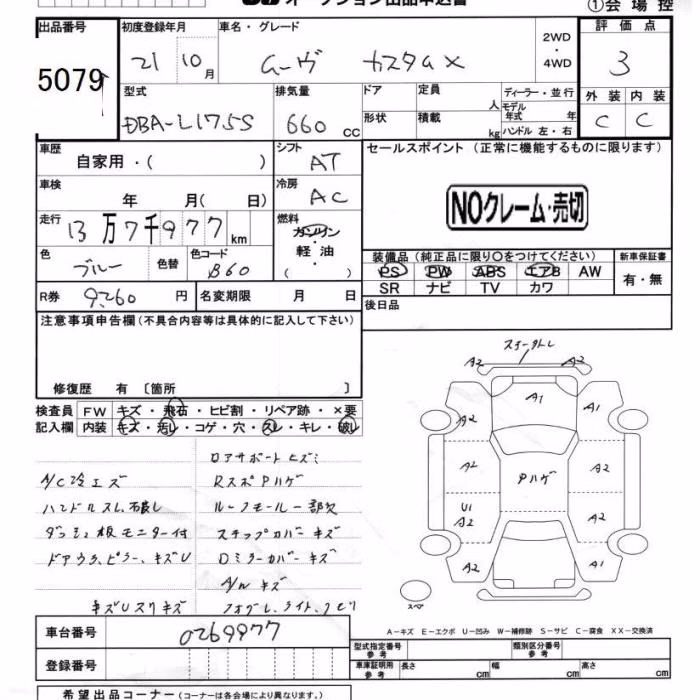 オークション出品申込書
①会場控
出品番号 初度登録年月 車名・グレード 2WD・4WD 評価点
5079 21 10月 ムーヴ カスタムX 3
型式 排気量 ドア 定員 人 ディーラー・並行 外装 内装
DBA-L175S 660cc 形状 積載 kg モデル年式 年 ハンドル 左・右 C C
車歴 自家用・( ) シフト AT セールスポイント(正常に機能するものに限ります)
車検 年 月( 日) 冷房 AC
NOクレーム・売切
走行 13万7千977km 燃料 ガソリン・軽油・( )
色 ブルー 色替 色コード B60
装備品(純正品に限り〇をつけてください) 新車保証書
PS PW ABS エアB AW 有・無
SR ナビ TV カワ
R券 9,260円 名変期限 月 日 後日品
注意事項申告欄(不具合内容等は具体的に記入して下さい)
修復歴 有〔箇所 〕
検査員 FW キズ・飛石・ヒビ割・リペア跡・×要
記入欄 内装 キズ・汚レ・コゲ・穴・スレ・キレ・破レ
ロアサポートヒズミ
A/C冷エズ RスポPハゲ
ハンドルスレ ルーフモール一部欠
ダッシュ板モニター付 ステップカバーキズ
ドアウラ、ピラー、キズU Dミラーカバーキズ
A/Wキズ
キズUスリキズ フォグレ、ライト、クモリ
A2 A2
A1
A2 A1
A2 Pハゲ A2
U1 A2 A2
A2 A1
スペア
A-キズ E-エクボ U-凹み W-補修跡 S-サビ C-腐食 XX-交換済
車台番号 0269977
型式指定番号 参考 類別区分番号 参考
登録番号 車庫証明用 参考 長さ cm 幅 cm 高さ cm
希望出品コーナー(コーナーは各会場により異なります。)